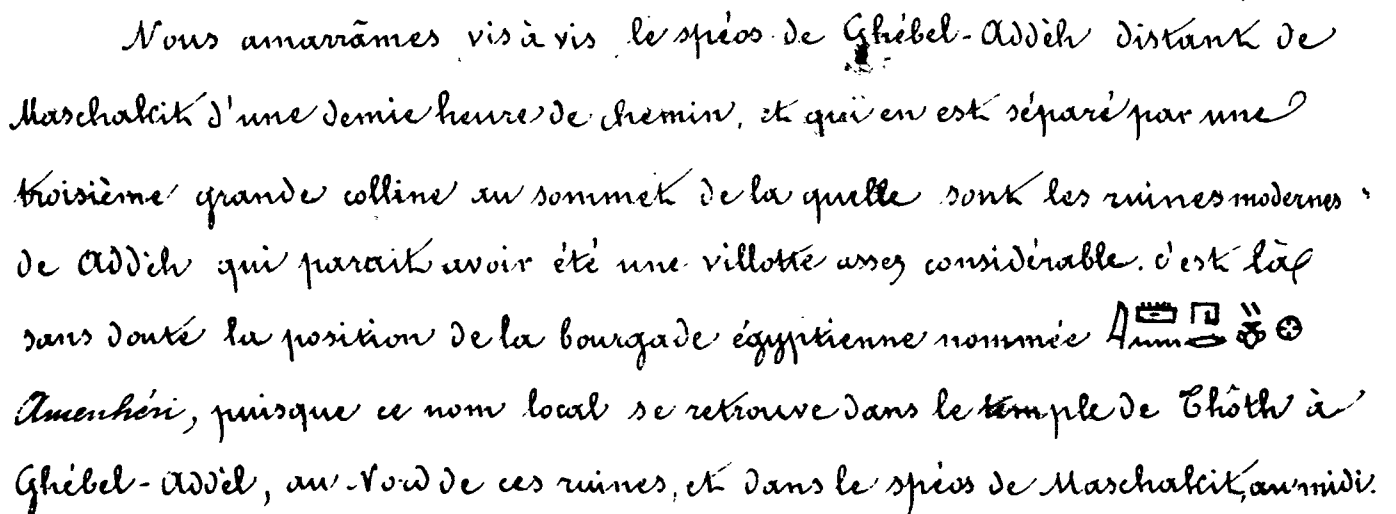 Nous amarrâmes vis à vis le spéos de Ghébel-Addèh distant de
Maschakit d'une demie heure de chemin, et qui en est séparé par une
troisième grande colline au sommet de la quelle sont les ruines modernes
de Addèh qui parait avoir été une villotte assez considérable. c'est là
sans doute la position de la bourgade égyptienne nommée
Amenhéri, puisque ce nom local se retrouve dans le temple de Thôth à
Ghébel-Addèl, au Nord de ces ruines, et dans le spéos de Maschakit, au midi.